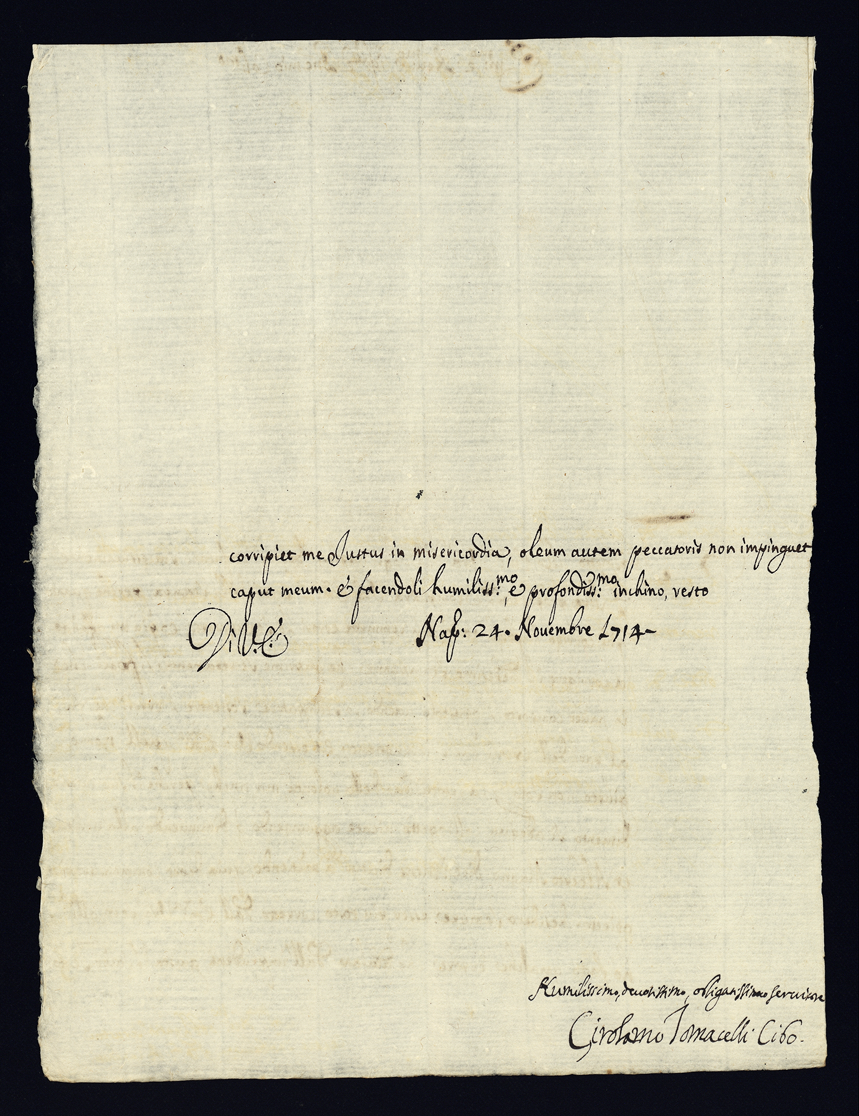 corripiet me Justus in misericordia, oleum autem peccatoris non impinguet
caput meum. è facendoli humiliss:mo, e profondiss:mo inchino, resto
Di V.E. Nap: 24. Novembre 1714
Humilissimo, devotissimo, obligatissimo servitore
Girolamo Tomacelli Cibo.